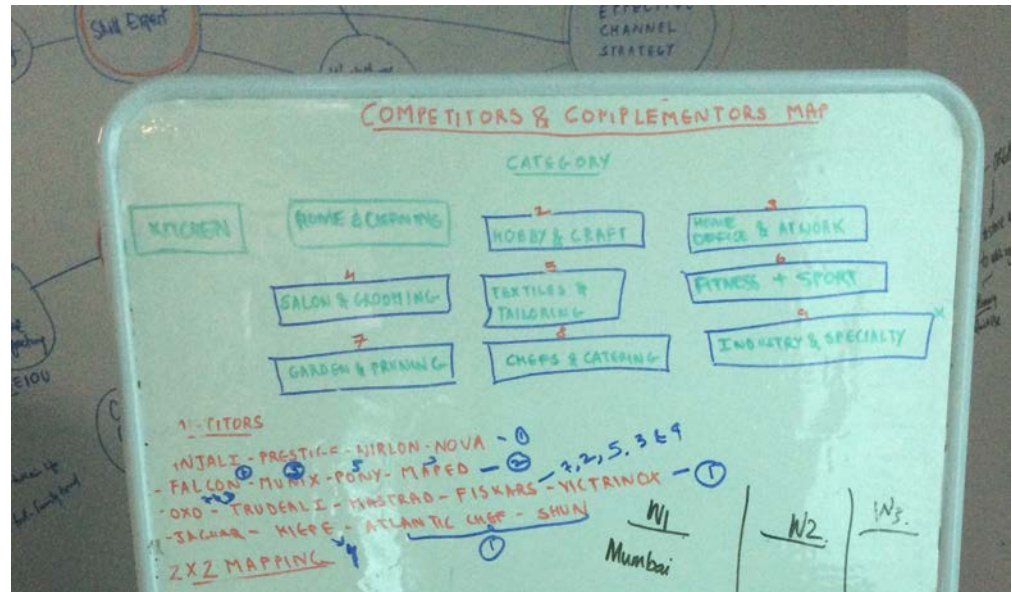 Skill Expert
CHANNEL
STRATEGY
COMPETITORS & COMPLEMENTORS MAP
CATEGORY
KITCHEN
HOME & CLEANING
2
HOBBY & CRAFT
3
HOME OFFICE & ATWORK
4
SALON & GROOMING
5
TEXTILES & TAILORING
6
FITNESS + SPORT
7
GARDEN & PRUNING
8
CHEFS & CATERING
9
INDUSTRY & SPECIALTY
-TITORS
INJALI - PRESTIGE - NIRLON - NOVA - 1
- FALCON - MUNIX - PONY - MAPED - 2
- OXO - TRUDEALI - MASTRAD - FISKARS - VICTRINOX - 1
7, 2, 5, 3 & 9
- JAGUAR - KIEPE - ATLANTIC CHEF - SHUN
4
1
2X2 MAPPING
W1
W2.
W3.
Mumbai
EIOU